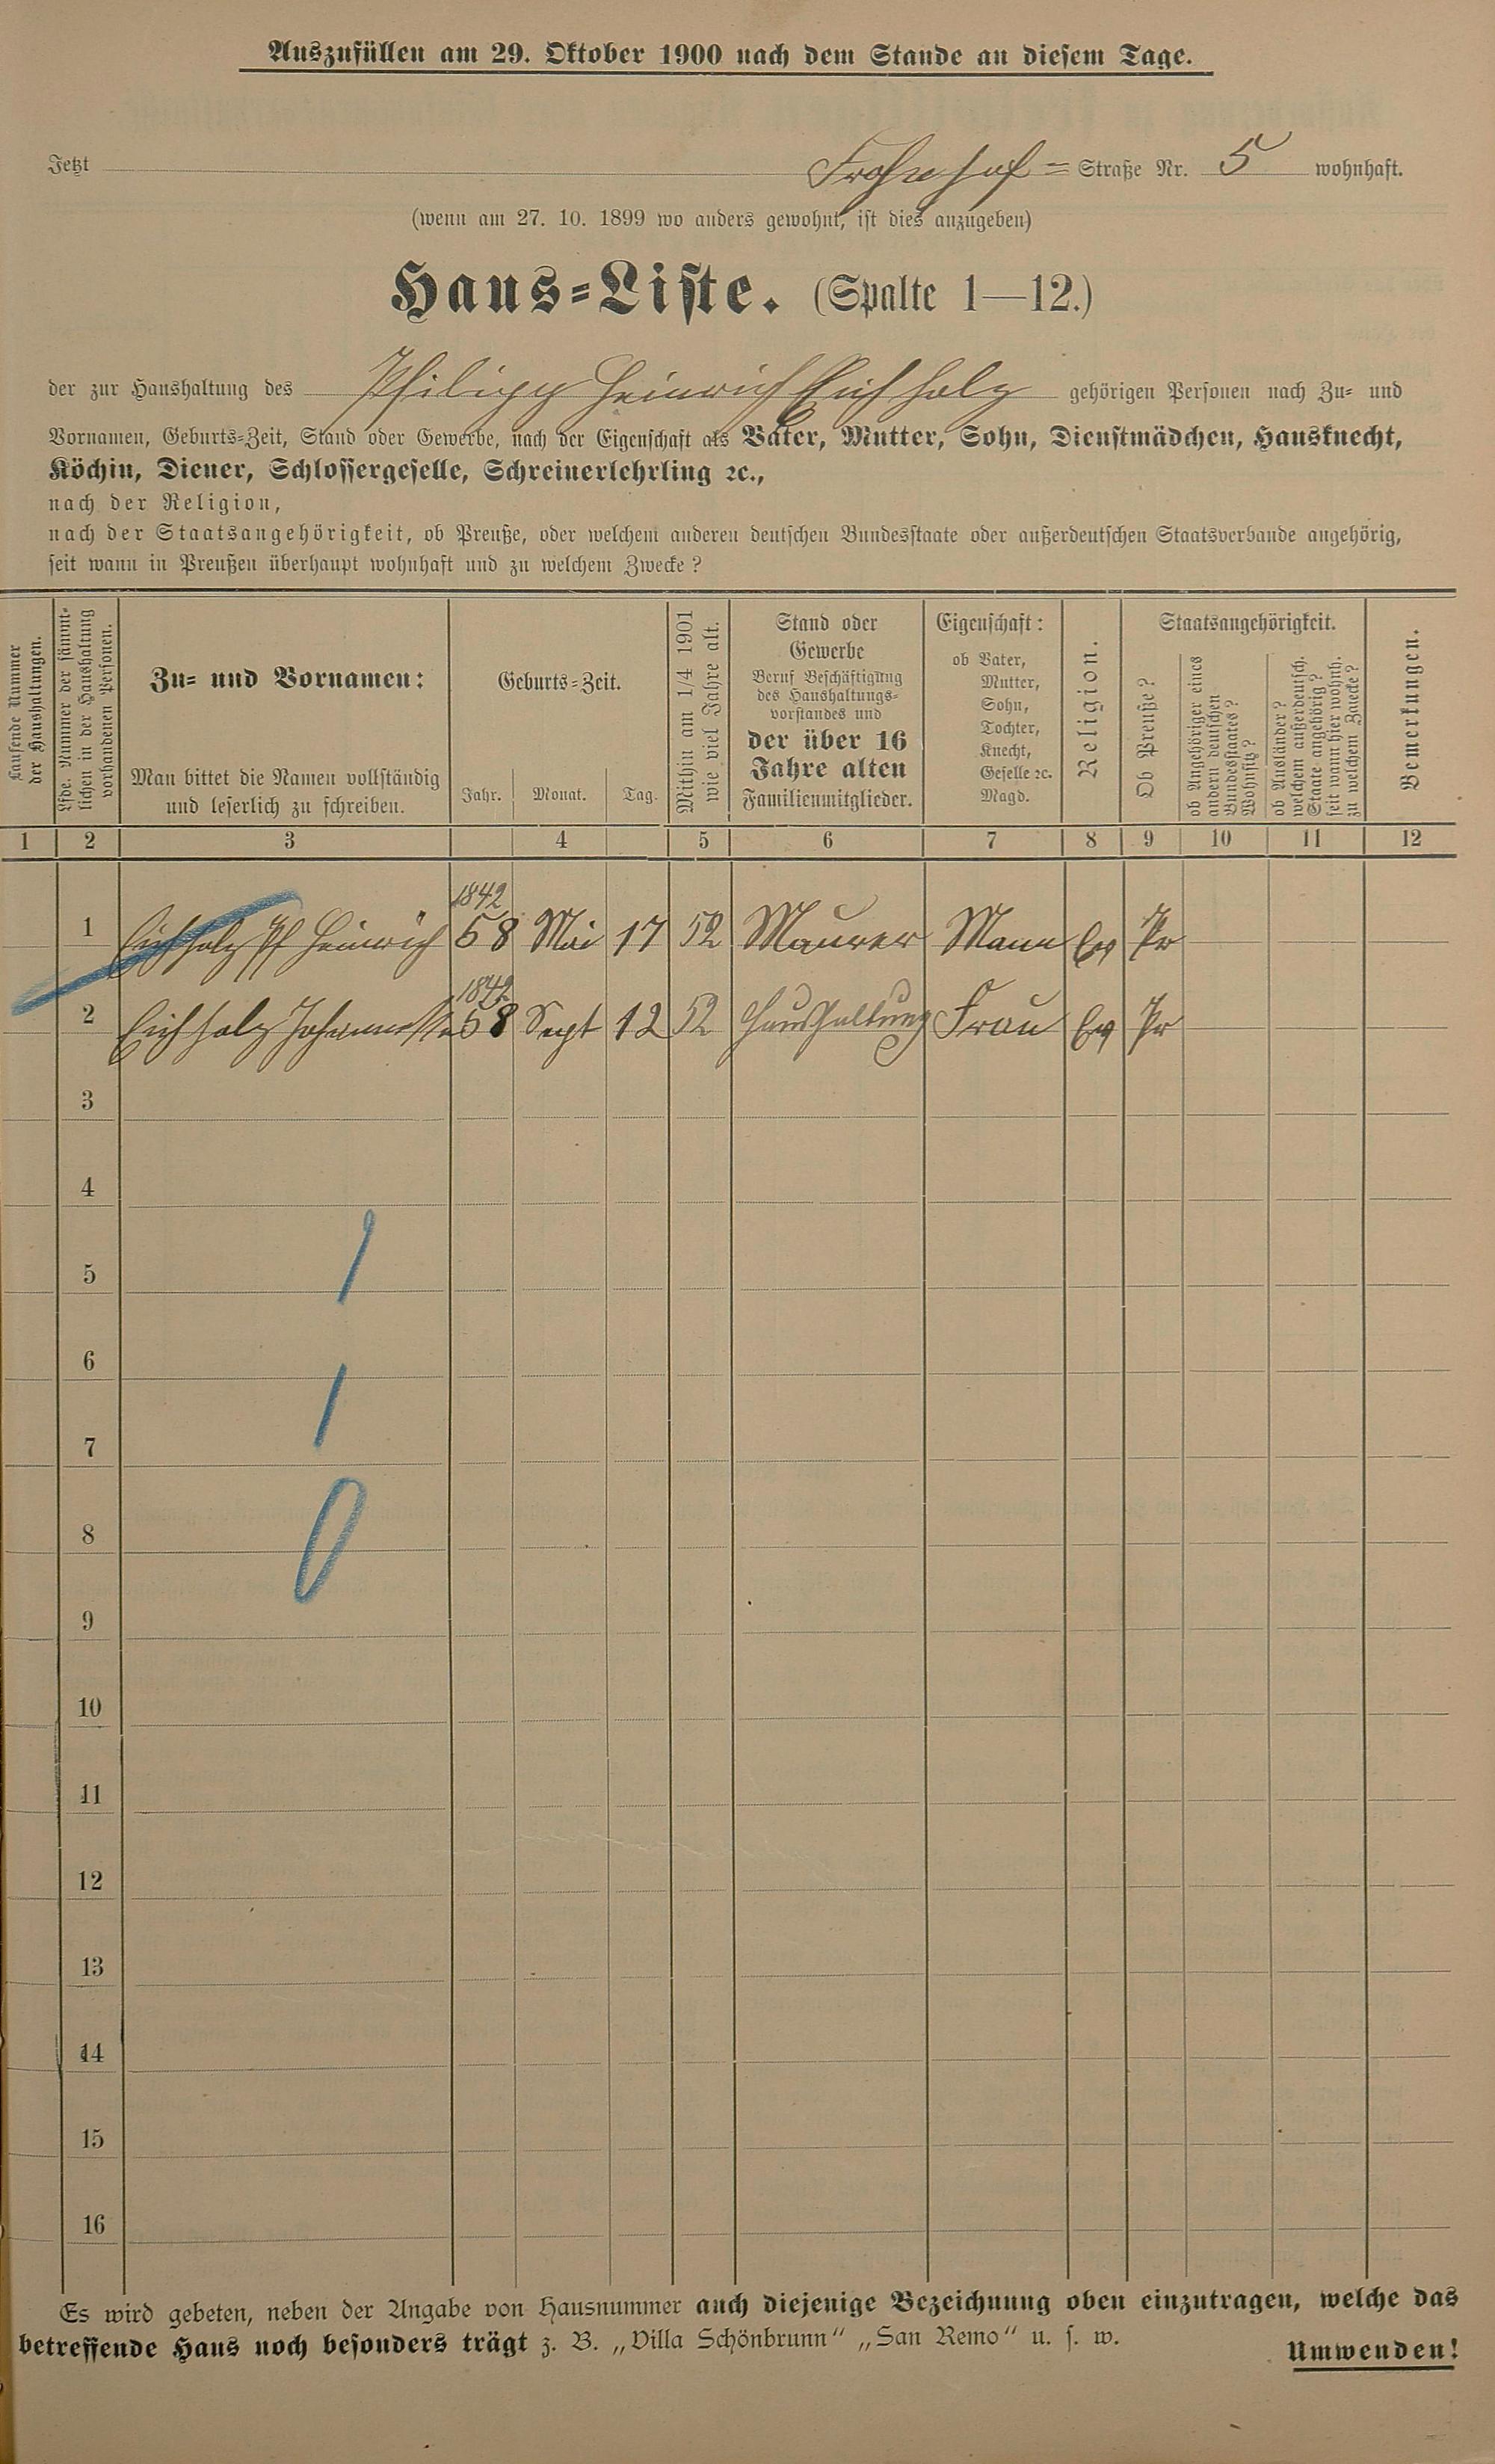 Auszufüllen am 29. Oktober 1900 nach dem Stande an diesem Tage.
Jetzt Frohnhof= Straße Nr. 5 wohnhaft.
(wenn am 27. 10. 1899 wo anders gewohnt, ist dies anzugeben)
Haus=Liste. (Spalte 1—12.)
der zur Haushaltung des Philipp Heinrich Eichholz gehörigen Personen nach Zu= und
Vornamen, Geburts=Zeit, Stand oder Gewerbe, nach der Eigenschaft als Vater, Mutter, Sohn, Dienstmädchen, Hausknecht,
Köchin, Diener, Schlossergeselle, Schreinerlehrling ꝛc.,
nach der Religion,
nach der Staatsangehörigkeit, ob Preuße, oder welchem anderen deutschen Bundesstaate oder außerdeutschen Staatsverbande angehörig,
seit wann in Preußen überhaupt wohnhaft und zu welchem Zwecke?
Laufende Nummer
der Haushaltungen.
Lfde. Nummer der sämmt-
lichen in der Haushaltung
vorhandenen Personen.
Zu= und Vornamen:
Man bittet die Namen vollständig
und leserlich zu schreiben.
Geburts=Zeit.
Jahr. Monat. Tag.
Mithin am 1/4 1901
wie viel Jahre alt.
Stand oder
Gewerbe
Beruf Beschäftigung
des Haushaltungs=
vorstandes und
der über 16
Jahre alten
Familienmitglieder.
Eigenschaft:
ob Vater,
Mutter,
Sohn,
Tochter,
Knecht,
Geselle ꝛc.
Magd.
Religion.
Staatsangehörigkeit.
Ob Preuße?
ob Angehöriger eines
andern deutschen
Bundesstaates?
Wohnsitz?
ob Ausländer?
welchem außerdeutsch.
Staate angehörig?
seit wann hier wohnh.
zu welchem Zwecke?
Bemerkungen.
1 2 3 4 5 6 7 8 9 10 11 12
1842
1 Eichholz Ph Heinrich 58 Mai 17 52 Maurer Mann Ev Pr
1842
2 Eichholz Johannette 58 Sept 12 52 Haushaltung Frau Ev Pr
3
4
5
1
6
1
7
8
0
9
10
11
12
13
14
15
16
Es wird gebeten, neben der Angabe von Hausnummer auch diejenige Bezeichnung oben einzutragen, welche das
betreffende Haus noch besonders trägt z. B. „Villa Schönbrunn“ „San Remo“ u. s. w.
Umwenden!